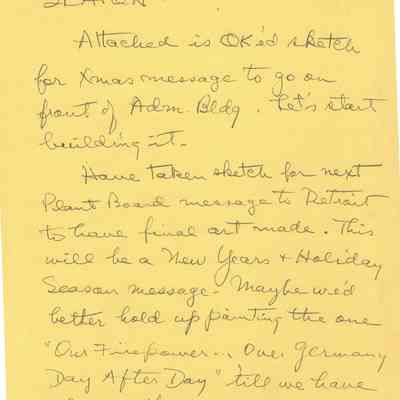 Attached is OK'd sketch
for Xmas message to go on
front of Adm. Bldg. Let's start
building it.
Have taken sketch for next
Plant Board message to Detroit
to have final art made. This
will be a New Years + Holiday
Season message. Maybe we'd
better hold up painting the one
"Our Firepower... Over Germany
Day After Day" 'till we have